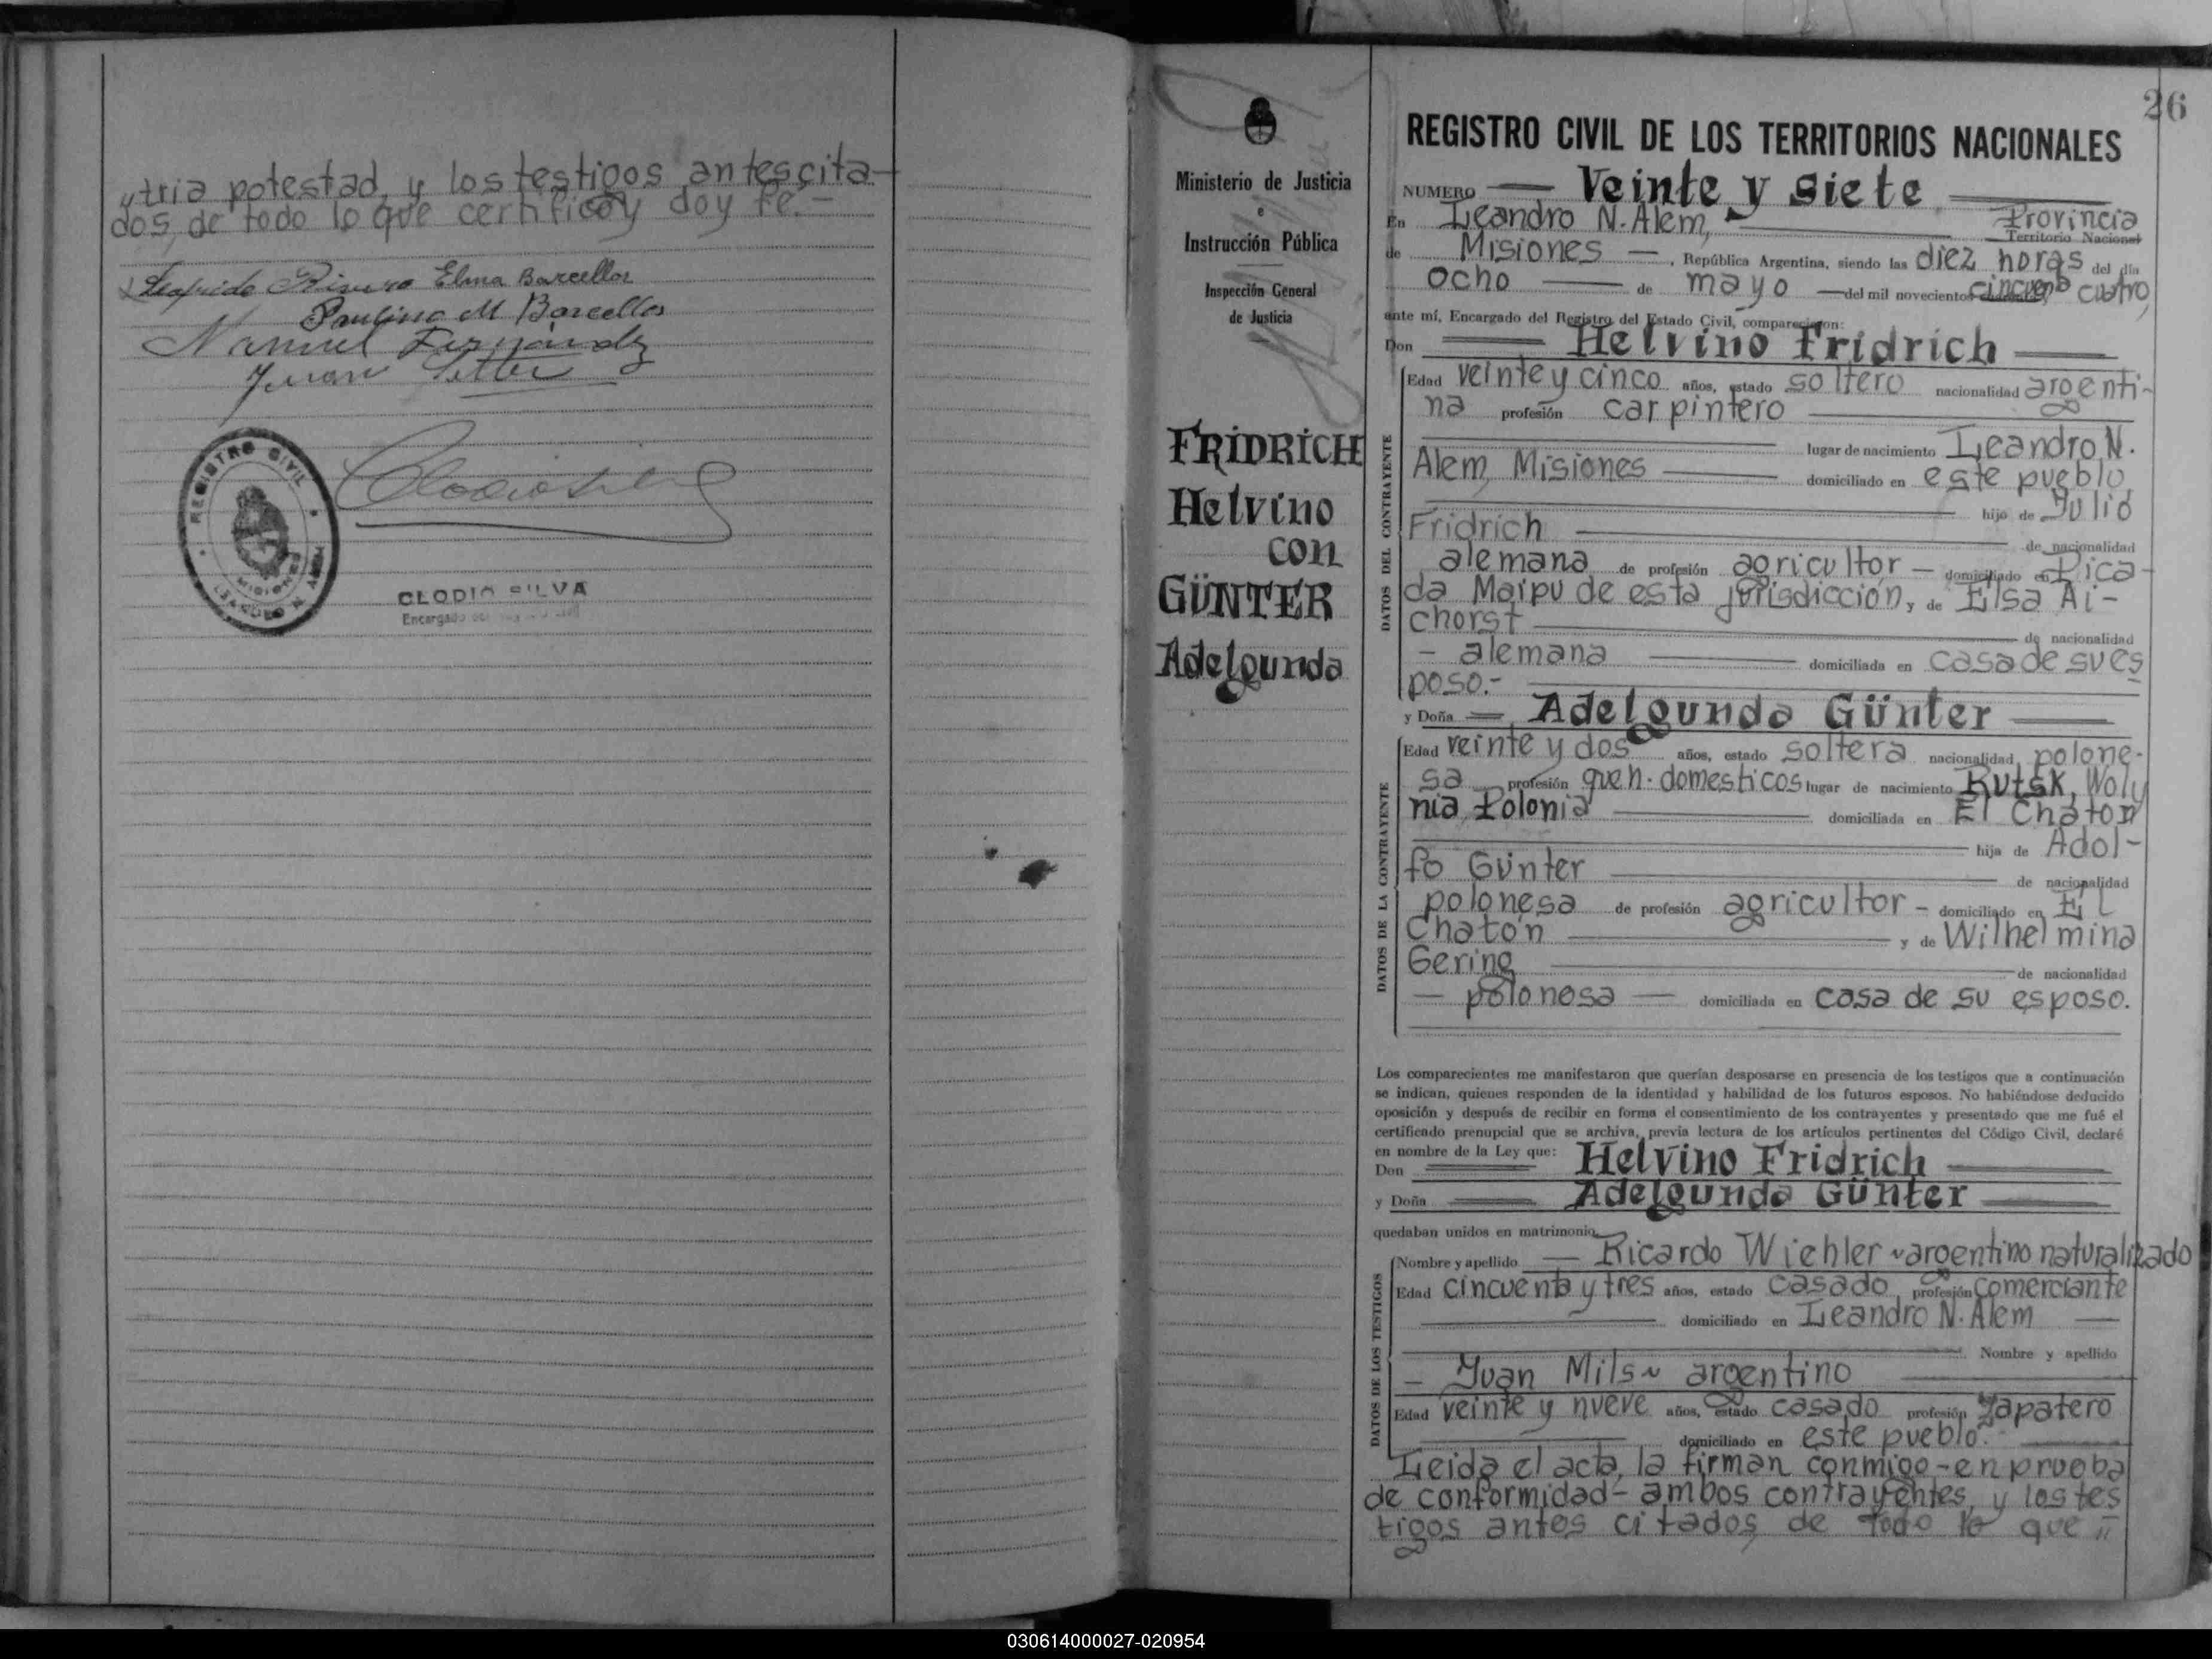 „tria potestad, y los testigos antescita-
dos, de todo lo que certifico y doy fe.-
Elma Barcellos
Paulino M Barcellos
Manuel Fernández
Juan
REGISTRO CIVIL
MISIONES
LEANDRO N. ALEM
CLODIO SILVA
Encargado del Registro Civil
26
Ministerio de Justicia
e
Instrucción Pública
Inspección General
de Justicia
FRIDRICH
Helvino
con
GÜNTER
Adelgunda
REGISTRO CIVIL DE LOS TERRITORIOS NACIONALES
NUMERO Veinte y siete
En Leandro N. Alem, Provincia
Territorio Nacional
de Misiones, República Argentina, siendo las diez horas del día
ocho de mayo del mil novecientos cincuenta cuatro,
ante mí, Encargado del Registro del Estado Civil, comparecieron:
Don Helvino Fridrich
DATOS DEL CONTRAYENTE
Edad veinte y cinco años, estado soltero nacionalidad argenti-
na profesión carpintero
lugar de nacimiento Leandro N.
Alem, Misiones domiciliado en este pueblo
hijo de Julio
Fridrich de nacionalidad
alemana de profesión agricultor - domiciliado en Pica-
da Maipu de esta jurisdicción, y de Elsa Ai-
chorst de nacionalidad
- alemana domiciliada en casa de su es
poso.-
y Doña Adelgunda Günter
DATOS DE LA CONTRAYENTE
Edad veinte y dos años, estado soltera nacionalidad polone-
sa profesión queh. domesticos lugar de nacimiento Rutsk, Woly
nia Polonia domiciliada en El Chaton
hija de Adol-
fo Günter de nacionalidad
polonesa de profesión agricultor - domiciliado en El
Chatón y de Wilhelmina
Gering de nacionalidad
- polonesa - domiciliada en casa de su esposo.
Los comparecientes me manifestaron que querían desposarse en presencia de los testigos que a continuación
se indican, quienes responden de la identidad y habilidad de los futuros esposos. No habiéndose deducido
oposición y después de recibir en forma el consentimiento de los contrayentes y presentado que me fué el
certificado prenupcial que se archiva, previa lectura de los artículos pertinentes del Código Civil, declaré
en nombre de la Ley que:
Don Helvino Fridrich
y Doña Adelgunda Günter
quedaban unidos en matrimonio.
DATOS DE LOS TESTIGOS
Nombre y apellido - Ricardo Wiehler ~ argentino naturalizado
Edad cincuenta y tres años, estado casado profesión comerciante
domiciliado en Leandro N. Alem
Nombre y apellido
- Juan Mils ~ argentino
Edad veinte y nueve años, estado casado profesión zapatero
domiciliado en este pueblo.
Leida el acta, la firman conmigo - en prueba
de conformidad - ambos contrayentes, y los tes
tigos antes citados, de todo lo que „
030614000027-020954